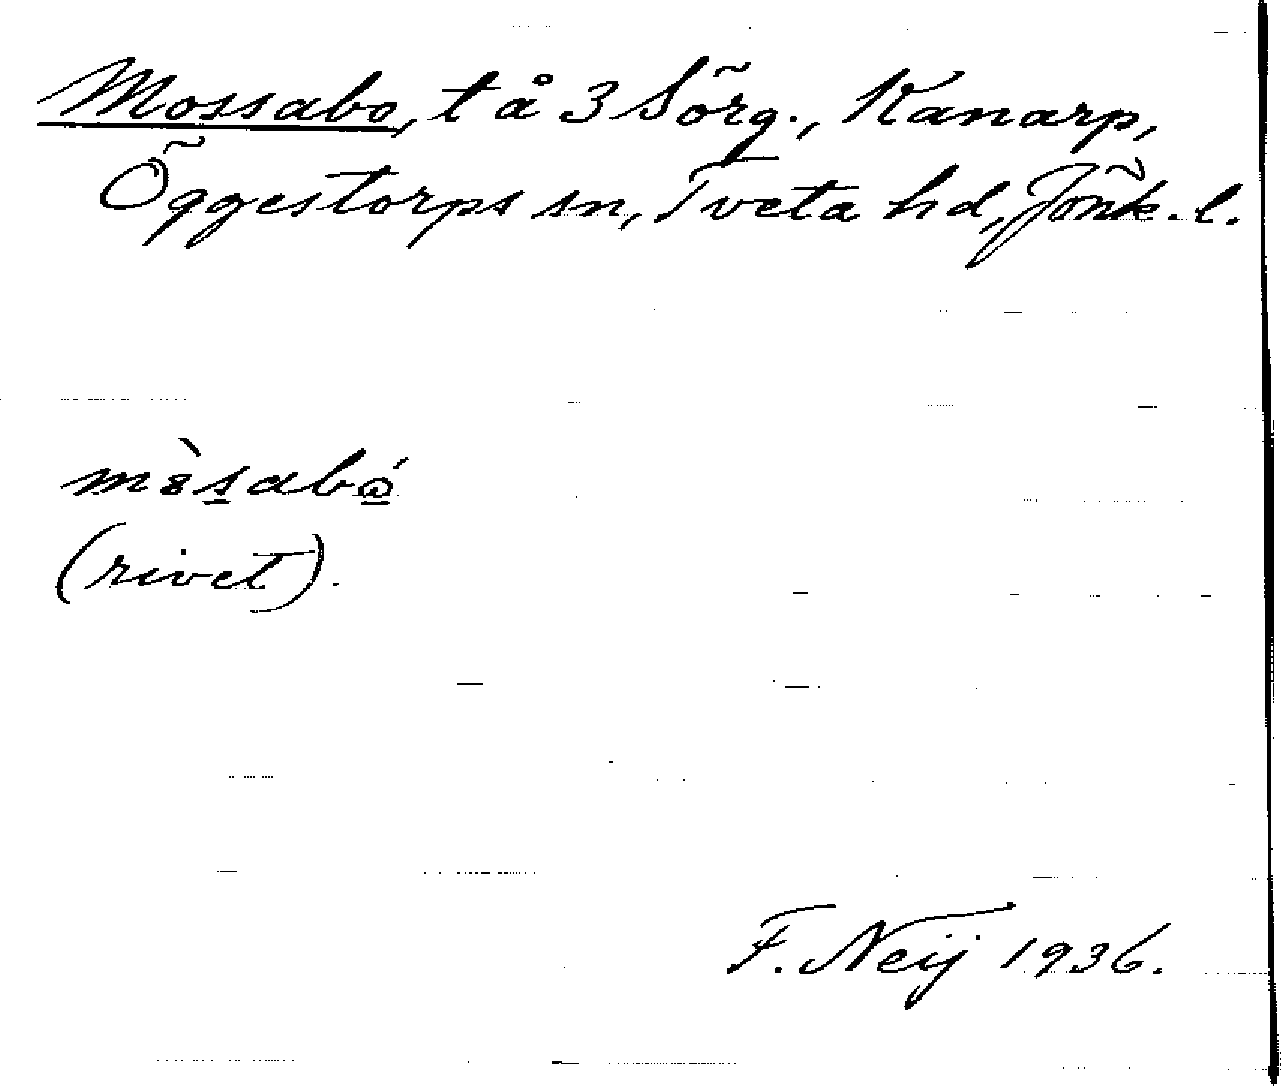 Mossabo, t å 3 Sörg., Kanarp,
Öggestorps sn, Tveta hd, Jönk. l.
(rivet).
F. Neij 1936.